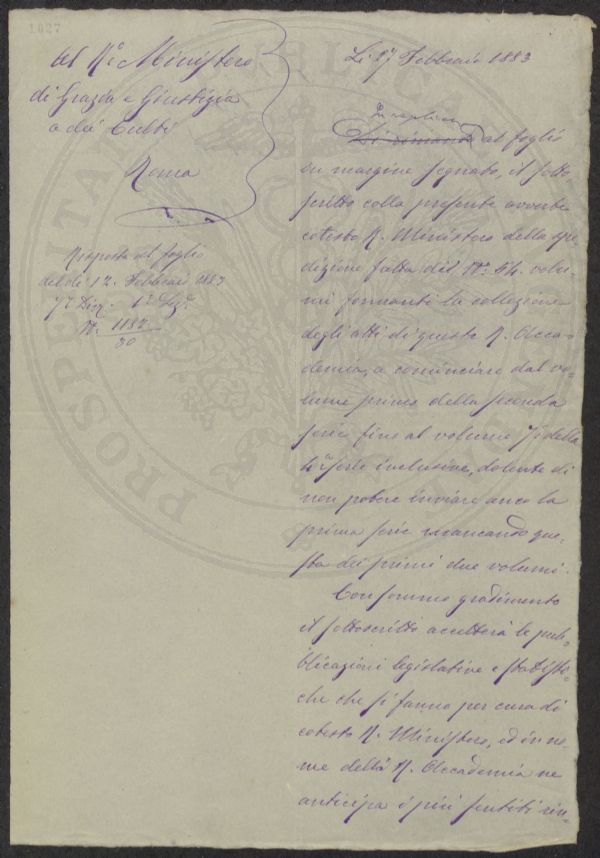 1027
Al R.º Ministero
di Grazia e Giustizia
e dei Culti
Roma
Risposta al foglio
del dì 12. Febbraio 1883
7ª Div. 1ª Sez.e
N.º 1187/80
Li 27 Febbraio 1883
In replica
Di rimando al foglio
in margine segnato, il sotto
scritto colla presente avverte
cotesto R. Ministero della spe
dizione fatta dei N.º 54. volu-
mi formanti la collezione
degli atti di questa R. Acca-
demia, a cominciare dal vo-
lume primo della seconda
serie fino al volume 7º della
4ª serie inclusive, dolente di
non potere inviare anco la
prima serie mancando que-
sta dei primi due volumi.
Con sommo gradimento
il sottoscritto accetterà le pub-
blicazioni legislative e statisti-
che che si fanno per cura di
cotesto R. Ministero, ed in no-
me della R. Accademia ne
anticipa i più sentiti rin-
PROSPERITATI PUBLICAE